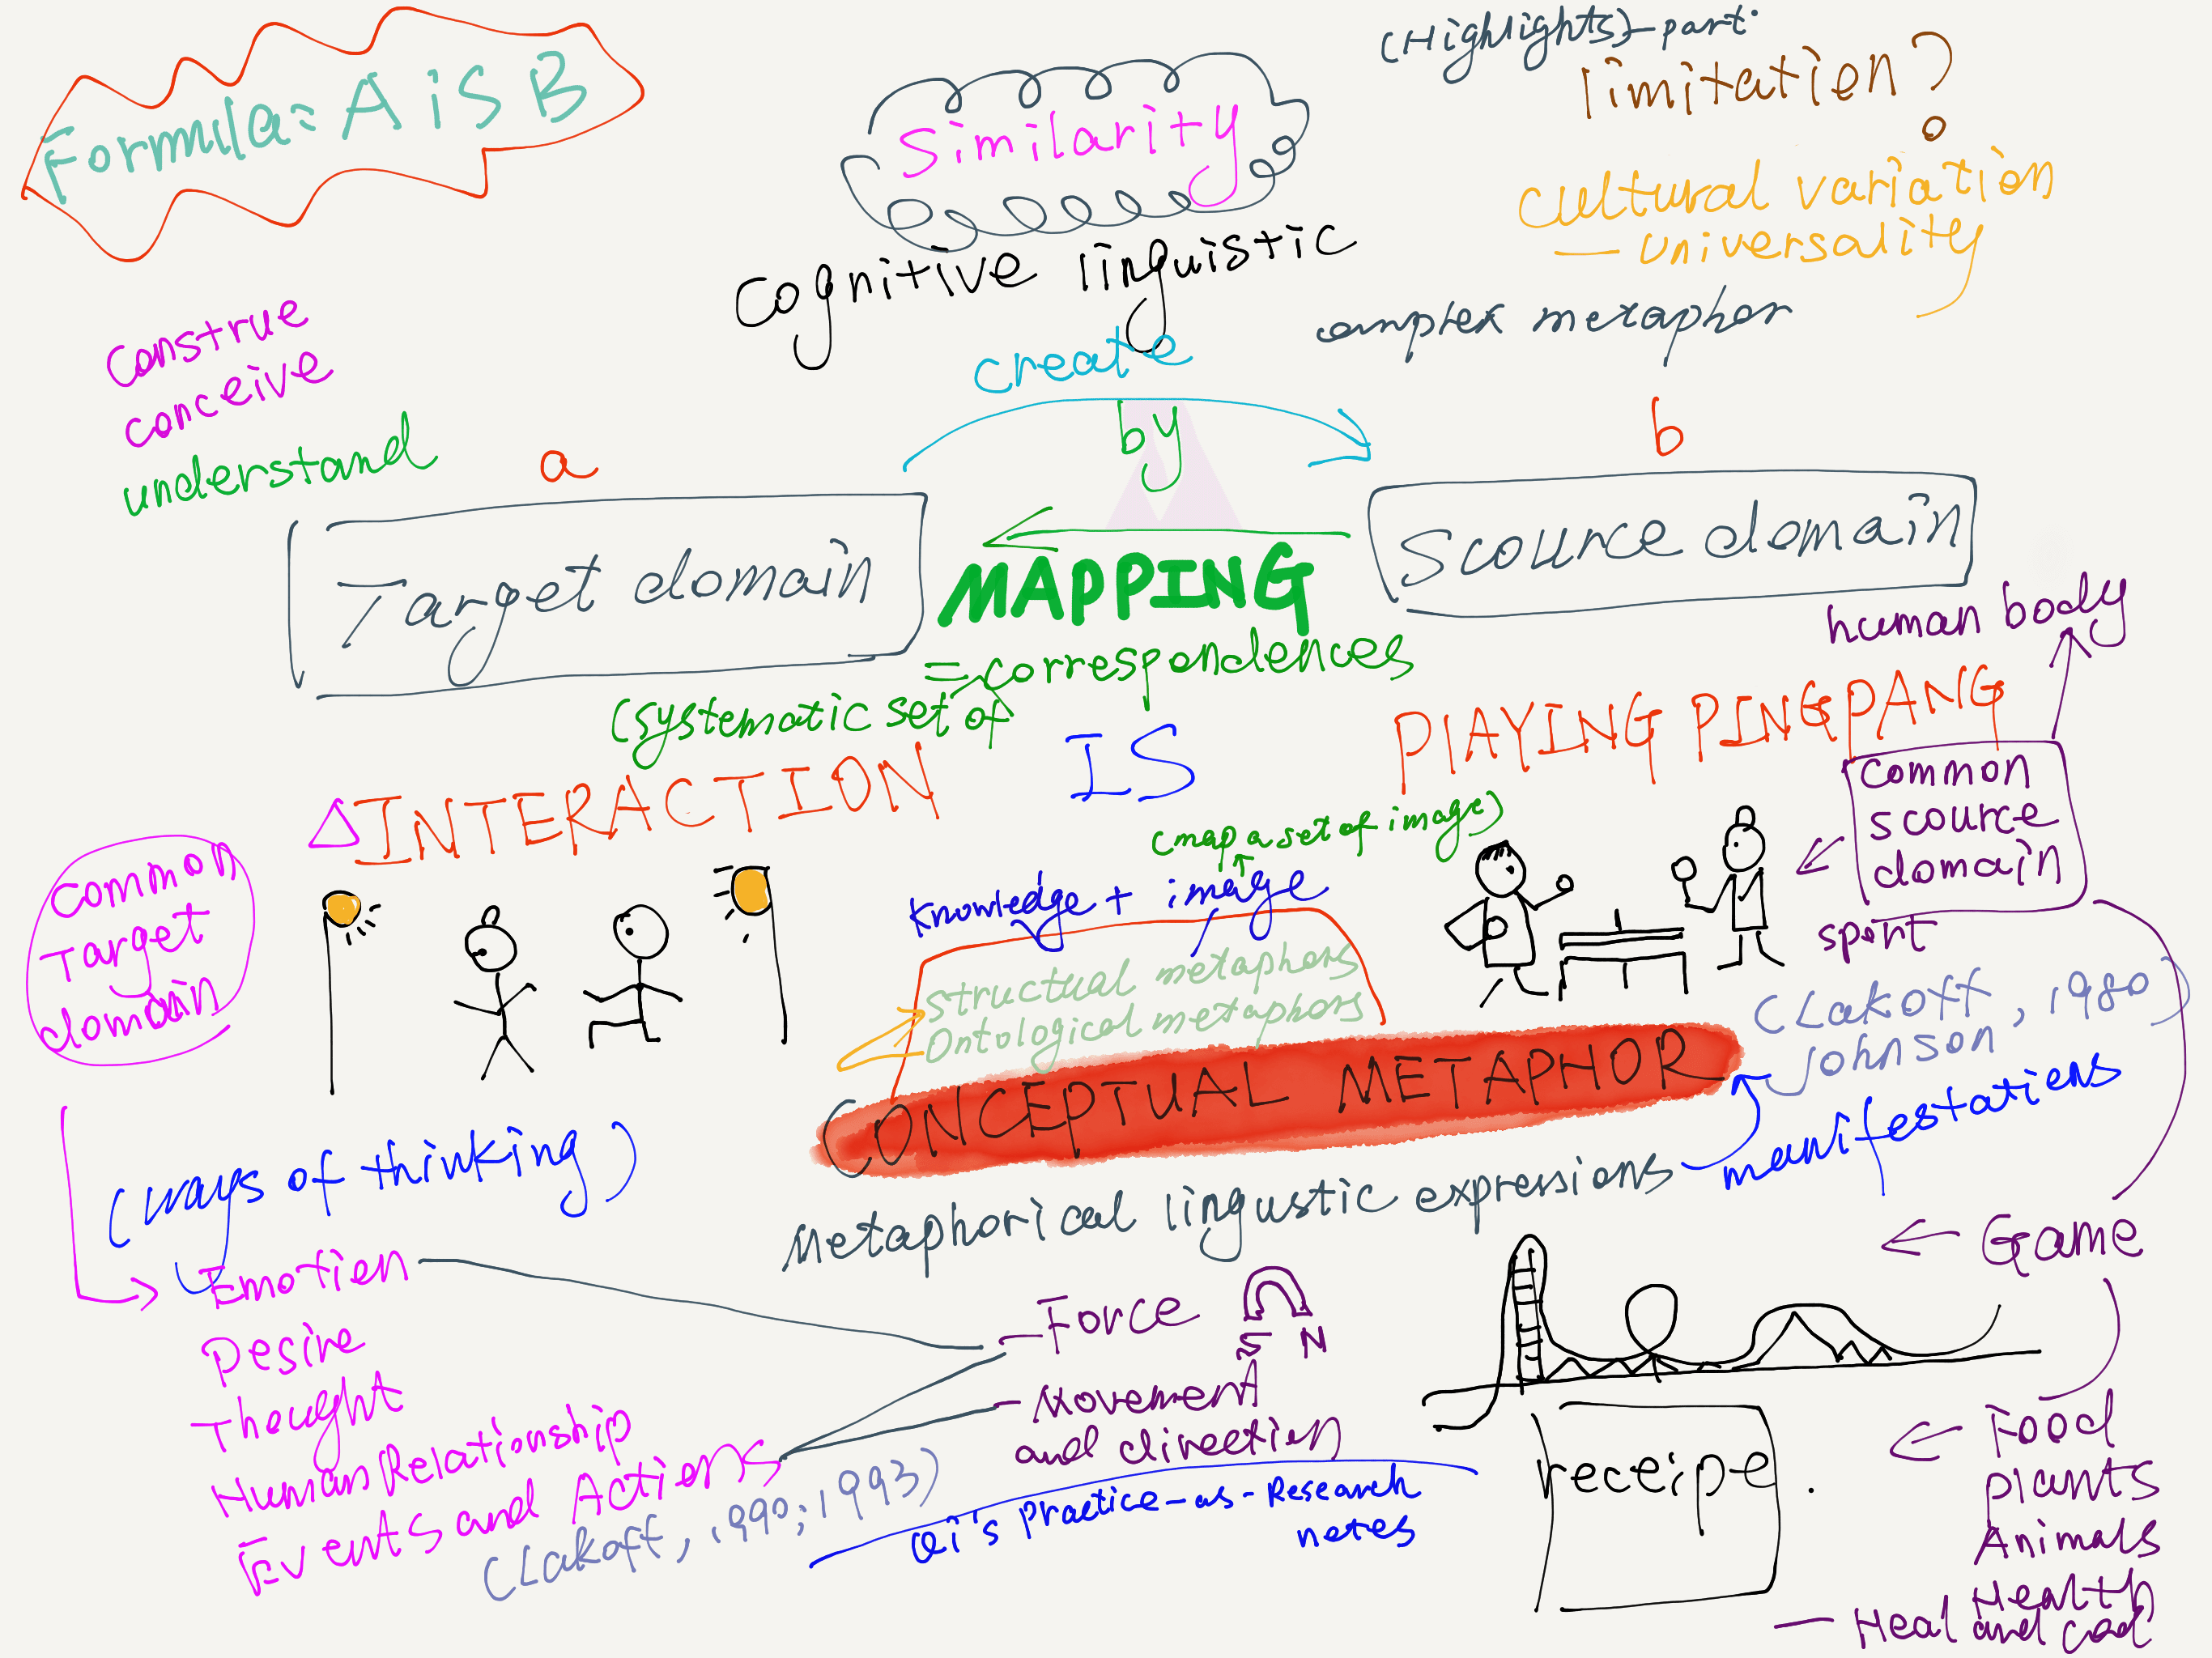 Formula: A is B
Similarity
Cognitive linguistic
(Highlights)-part.
limitation?
cultural variation
— universality
complex metaphor
construe
conceive
understand
create
by
a
b
Target domain
Scource domain
MAPPING
= correspondences
(systematic set of
human body
△INTERACTION
IS
PLAYING PINGPANG
common
scource
domain
sport
(map a set of image)
knowledge + image
structual metaphors
Ontological metaphors
Common
Target
domain
CONCEPTUAL METAPHOR
(Lakoff, 1980)
Johnson
manifestations
Metaphorical lingustic expressions
(ways of thinking)
Emotion
Desire
Thought
Human Relationship
Events and Actions
(Lakoff, 1990; 1993)
—Force
S N
—Movement
and direction
Qi's Practice-as-Research
notes
Game
receipe.
Food
plants
Animals
Health
— Heat and cold